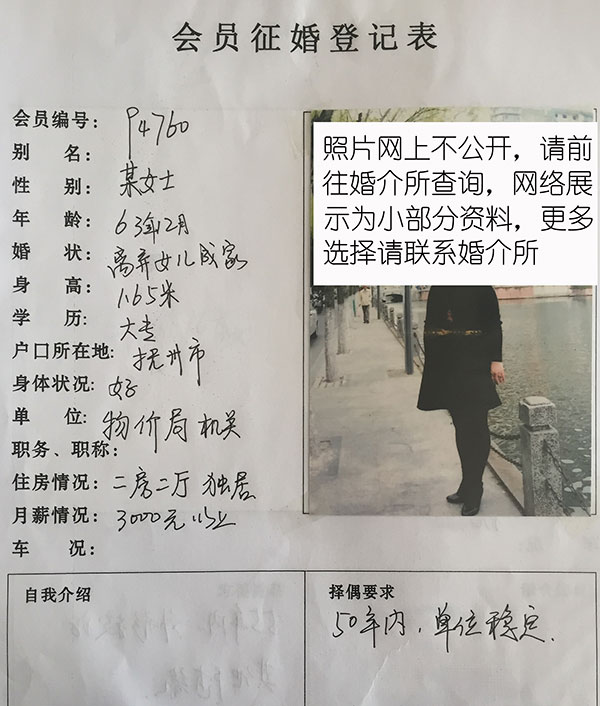 会员征婚登记表
会员编号: P4760
别 名:
性 别: 某女士
年 龄: 63年12月
婚 状: 离异女儿成家
身 高: 1.65米
学 历: 大专
户口所在地: 抚州市
身体状况: 好
单 位: 物价局机关
职务、职称:
住房情况: 二房二厅 独居
月薪情况: 3000元以上
车 况:
照片网上不公开，请前
往婚介所查询，网络展
示为小部分资料，更多
选择请联系婚介所
自我介绍
择偶要求
50年内，单位稳定.